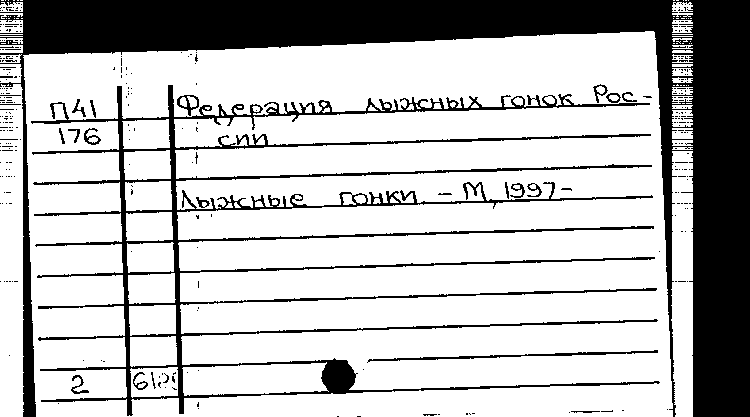 П41 Федерация лыжных гонок Рос-
176 сии
Лыжные гонки. - М, 1997-
2